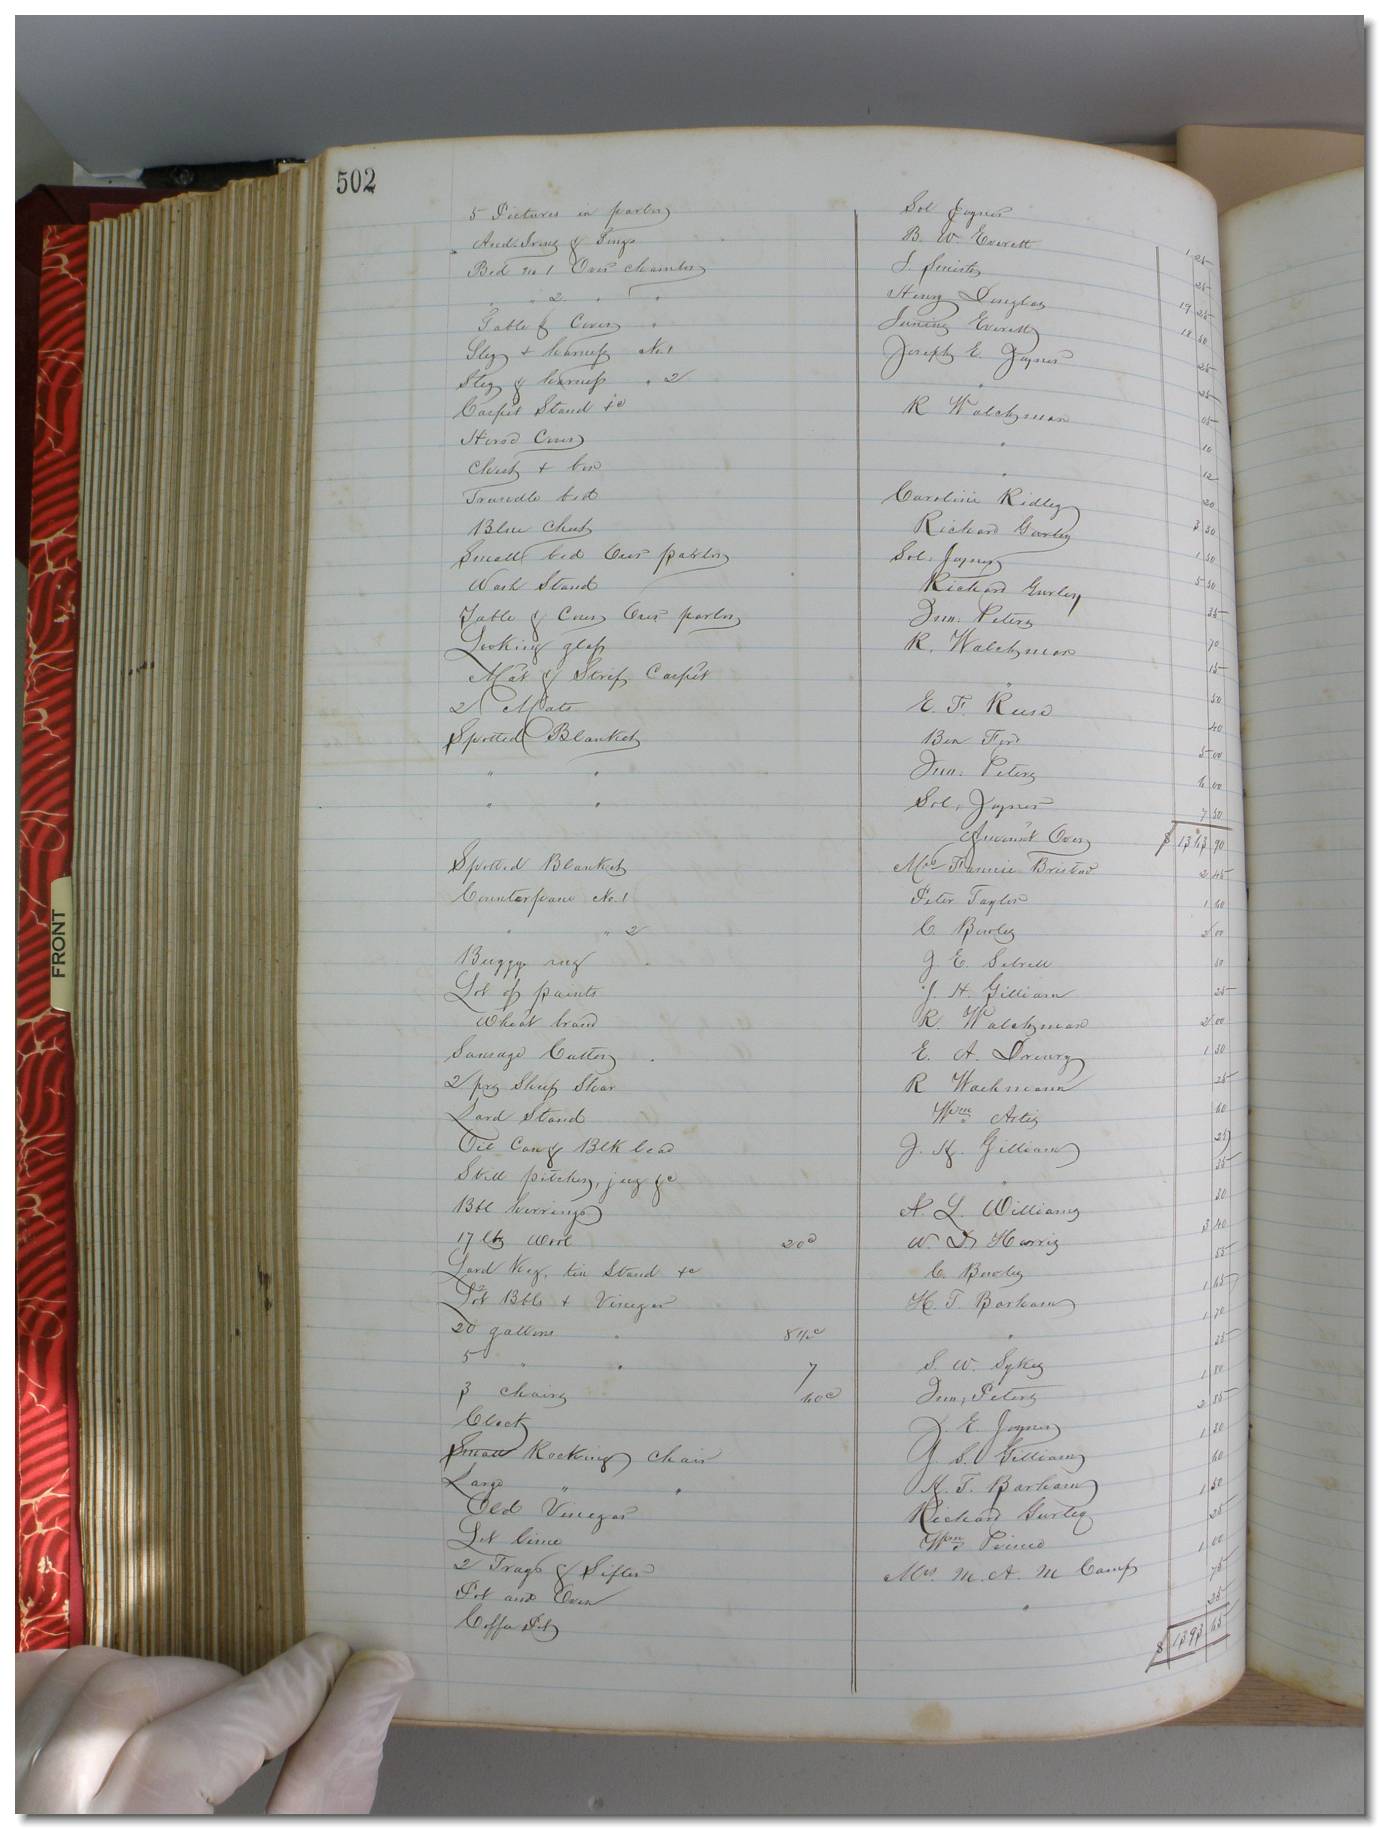 502
5 Pictures in parlor Sol Joyner 1 25
And. Irons & Tongs B. W. Everett 25
Bed No 1 Over chamber 19 25
" " 2 " " Henry Douglas 18 50
Table & Cover " Junius Everett 25
No 1 Joseph E. Joyner 25
" 2 " 05
Carpet Stand &c R Walchman 10
Horse Cover " 12
Chest & box " 20
Trundle bed Caroline Ridley 3 50
Blue Chest Richard Gurley 1 50
Small bed Over parlor Sol. Joyner 5 50
Wash Stand Richard Gurley 35
Table & Cover Over parlor Jno. Peters 70
Looking glass R. Walchman 15
Mat & Strip Carpet " 50
2 Mats E. F. Reese 40
Spotted Blanket Ben Ford 5 00
" " Jno. Peters 6 00
" " Sol. Joyner 7 50
Amount Over $ 90
Spotted Blanket Mrs Fannie Bristow 2 45
Counterpane No. 1 Peter Taylor 1 60
" " 2 C. Bowley 2 00
Buggy rug J. E. Sebrell 60
Lot of paints J. H. Gilliam 25
Wheat brand R. Walchman 2 00
Sausage Cutter E. A. Drewry 1 30
2 prs Sheep Shear R Wachmann 25
Lard Stand Wm Artis 60
Oil Can & Blk lead J. H. Gilliam 25
Still pitcher, jug &c " 25
Bbl herrings N. L. Williams 30
17 lbs Wool 20c W. D. Harris 3 40
Lard Keg, tin Stand &c C. Bowley 55
Lot Bbls & Vinegar H. T. Barham 1 65
20 gallons " 8 1/2c " 1 70
5 " " 7 S. W. Sykes 35
3 chairs 60c Jno. Peters 1 80
Clock J. E. Joyner 2 55
Small Rocking chair J. S. Gilliam 1 30
Large " " H. T. Barham 60
Old Vinegar Richard Gurley 1 50
Lot lime Wm 25
2 Trays & Sifter Mrs. M. A. M Camp 1 00
Pot and Oven " 75
Coffee Pot 25
$ 1393 65
FRONT